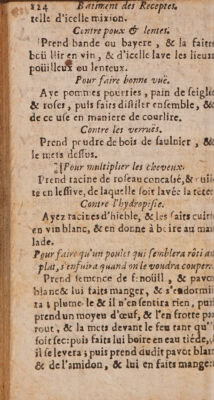 124 Bâtiment des Receptes.
telle d'icelle mixion.
Contre poux & lentes.
Prend bande ou bayere, & la faits
boüllir en vin, & d'icelle lave les lieux
poüilleux ou lenteux.
Pour faire bonne vuë.
Aye pommes pourries, pain de seigle
& roses, puis fais distiler ensemble, &
de ce use en maniere de courlire.
Contre les verruës.
Prend poudre de bois de saulnier, &
le mets dessus.
Pour multiplier les cheveux.
Prend racine de roseau concassé, &
te en lessive, de laquelle soit lavée la tête
Contre l'hydropisie.
Ayez racines d'hieble, & les faits cuire
en vin blanc, & en donne à boire au ma
lade.
Pour faire qu'un poulet qui semblera rôti au
plat, s'enfuira quand on le voudra couper.
Prend semence de fenoüil, & pavot
blanc & lui faits manger, & s'endormit
ra; plume le & il n'en sentira rien, puis
prend un moyeu d'œuf, & l'en frotte par
tout, & la mets devant le feu tant qu'il
soit sec: puis faits lui boire en eau tiéde, &
il se levera; puis prend dudit pavot blanc
& de l'amidon, & lui en faits manger